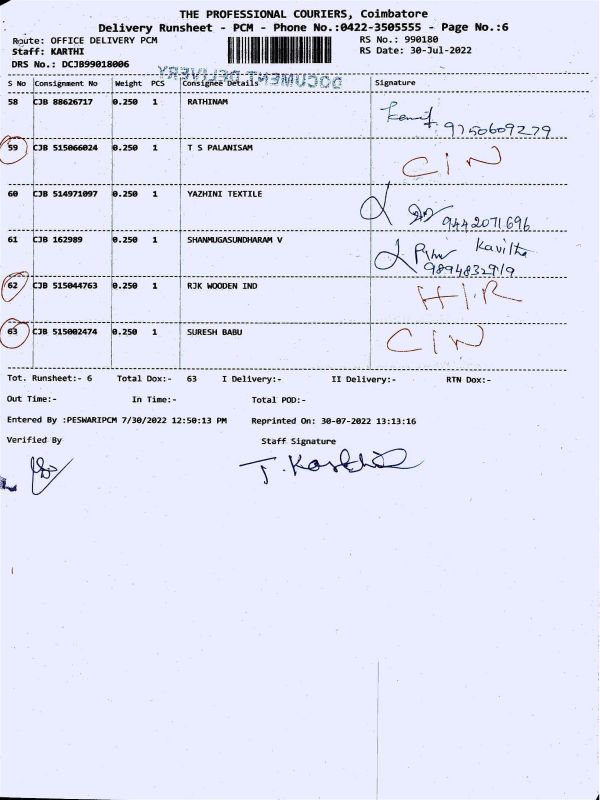 THE PROFESSIONAL COURIERS, Coimbatore
Delivery Runsheet - PCM - Phone No.:0422-3505555 - Page No.:6
Route: OFFICE DELIVERY PCM RS No.: 990180
Staff: KARTHI RS Date: 30-Jul-2022
DRS No.: DCJB99018006
DOCUMENT DELIVERY
S No Consignment No Weight PCS Consignee Details Signature
58 CJB 88626717 0.250 1 RATHINAM
9750609279
59 CJB 515066024 0.250 1 T S PALANISAM CIN
60 CJB 514971097 0.250 1 YAZHINI TEXTILE
9442071696
61 CJB 162989 0.250 1 SHANMUGASUNDHARAM V Kavitha
9894832919
62 CJB 515044763 0.250 1 RJK WOODEN IND H/R
63 CJB 515002474 0.250 1 SURESH BABU CIN
Tot. Runsheet:- 6 Total Dox:- 63 I Delivery:- II Delivery:- RTN Dox:-
Out Time:- In Time:- Total POD:-
Entered By :PESWARIPCM 7/30/2022 12:50:13 PM Reprinted On: 30-07-2022 13:13:16
Verified By Staff Signature
T. Karthi